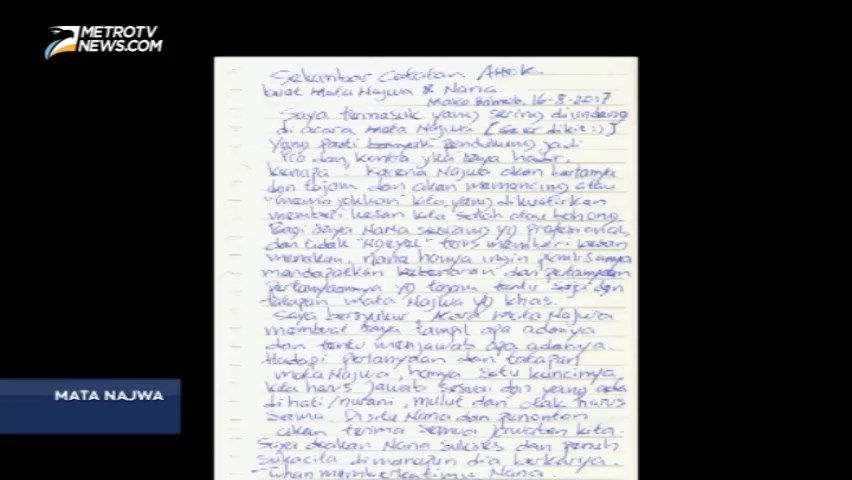 METROTV
NEWS.COM
Selembar Catatan Ahok
buat Mata Najwa & Nana.
Mako Brimob, 16-8-2017
Saya termasuk yang sering diundang
di acara Mata Najwa [Ga er dikit :)]
yang pasti banyak pendukung jadi
Pro dan kontra jika saya hadir.
kenapa? Karena Najwa akan bertanya
dgn tajam dan akan memancing atau
"memojokkan" kita, yang dikuatirkan
memberi kesan kita salah atau bohong
Bagi saya Nana seorang yg profesional,
dan tidak "Ngeyel" terus memberi kesan
menekan. Nana hanya ingin pemirsanya
mendapatkan kebenaran dari pertanyaan
pertanyaannya yg tajam tentu saja dgn
tatapan mata Najwa yg khas.
Saya bersyukur, Acara Mata Najwa
membuat saya tampil apa adanya
dan tentu menjawab apa adanya.
Hadapi pertanyaan dan tatapan
mata Najwa, hanya satu kuncinya
kita harus jawab sesuai dgn yang ada
di hati/nurani, mulut dan otak harus
sama. Disitu Nana dan penonton
akan terima semua jawaban kita.
Saya doakan Nana sukses dan penuh
sukacita dimanapun dia berkarya.
Tuhan memberkatimu Nana.
MATA NAJWA